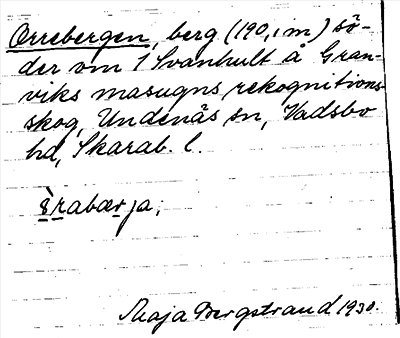 Orrebergen, berg (190,1 m) sö-
der om 1 Svanhult å Gran-
viks masugns rekognitions-
skog, Undenäs sn, Vadsbo
hd, Skarab. l.
rabærja,
Maja Bergstrand 1930.